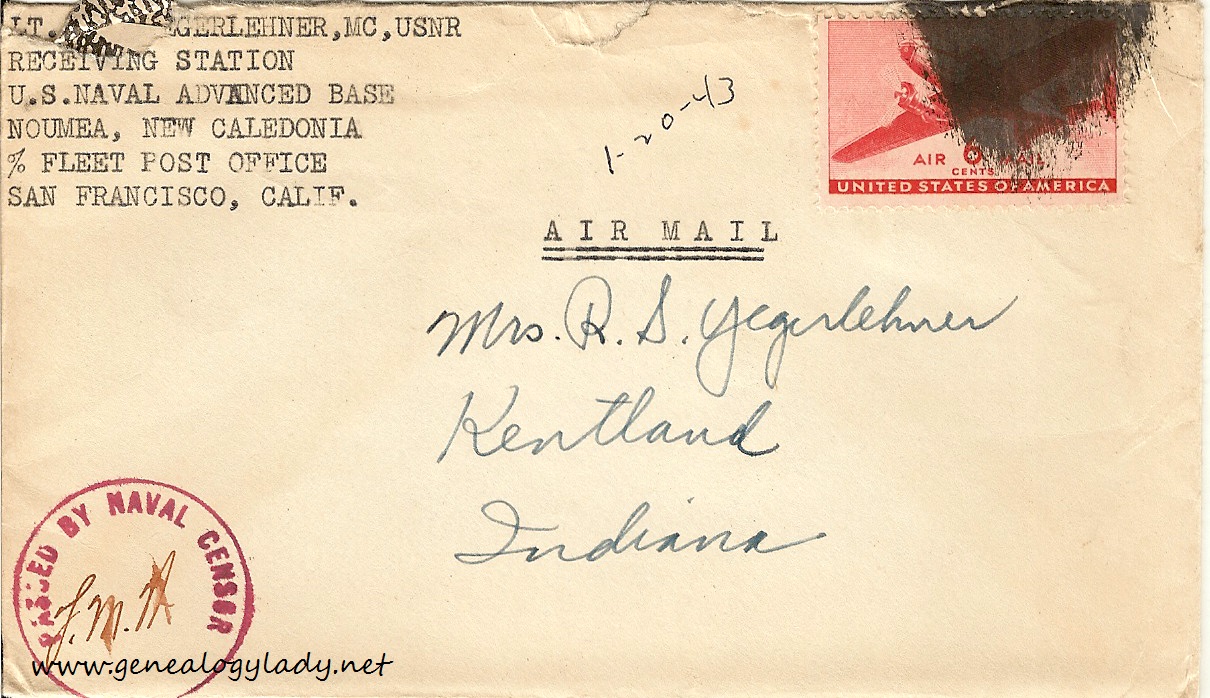 LT. EGERLEHNER,MC,USNR
RECEIVING STATION
U.S.NAVAL ADVANCED BASE
NOUMEA, NEW CALEDONIA
% FLEET POST OFFICE
SAN FRANCISCO, CALIF.
1-20-43
AIR 6 MAIL
CENTS
UNITED STATES OF AMERICA
AIR MAIL
Mrs. R. S. Yegerlehner
Kentland
Indiana
PASSED BY NAVAL CENSOR
www.genealogylady.net